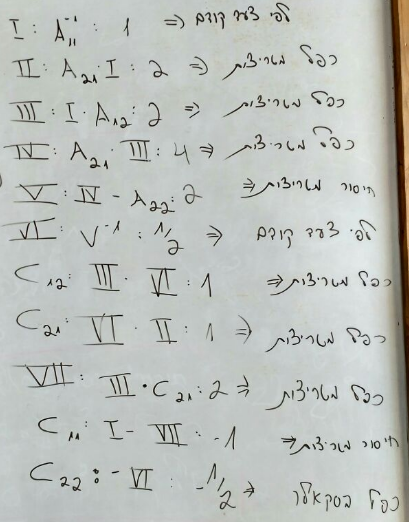 I : A₁₁⁻¹ : 1 ⇒ לפי צעד קודם
II : A₂₁·I : 2 ⇒ כפל מטריצות
III : I·A₁₂ : 2 ⇒ כפל מטריצות
IV : A₂₁·III : 4 ⇒ כפל מטריצות
V : IV - A₂₂ : 2 ⇒ חיסור מטריצות
VI : V⁻¹ : 1/2 ⇒ לפי צעד קודם
C₁₂ : III · VI : 1 ⇒ כפל מטריצות
C₂₁ : VI · II : 1 ⇒ כפל מטריצות
VII : III · C₂₁ : 2 ⇒ כפל מטריצות
C₁₁ : I - VII : -1 ⇒ חיסור מטריצות
C₂₂ : -VI : -1/2 ⇒ כפל בסקאלר